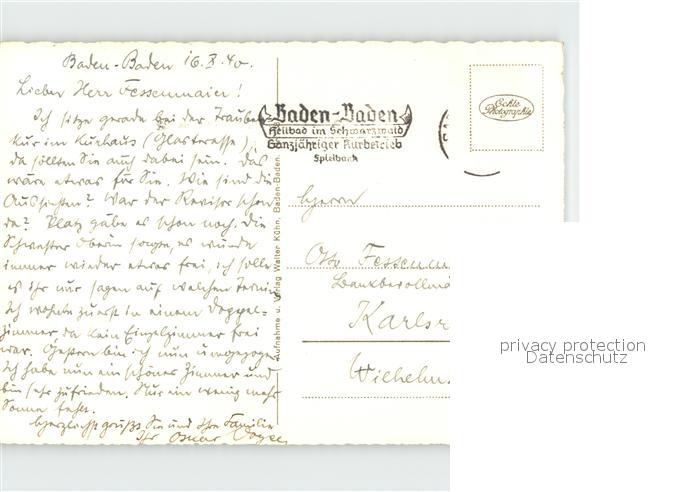 Baden-Baden 16.X.40.
Lieber Herr Fessenmaier!
Ich sitze gerade bei der Trauben-
kur im Kurhaus (Glasterasse),
da sollten Sie auch dabei sein. Das
wäre etwas für Sie. Wie sind die
Aussichten? War der Revisor schon
da? Platz gäbe es schon noch. Die
Schwester Oberin sagte, es würde
immer wieder etwas frei, ich solle
es ihr nur sagen auf welchen Termin.
Ich wohnte zuerst in einem Doppel-
zimmer da kein Einzelzimmer frei
war. Gestern bin ich nun umgezogen.
Ich habe nun ein schönes Zimmer und
bin sehr zufrieden. Nur ein wenig mehr
Sonne fehlt.
Herzlichst grüßt Sie und Ihre Familie
Ihr Oskar
Baden-Baden
Heilbad im Schwarzwald
Ganzjähriger Kurbetrieb
Spielbank
Echte
Photographie
Aufnahme u. Verlag Walter Kühn, Baden-Baden.
Herrn
Otto Fessenm
Bankbevollm
Karlsr
Wilhelm
privacy protection
Datenschutz